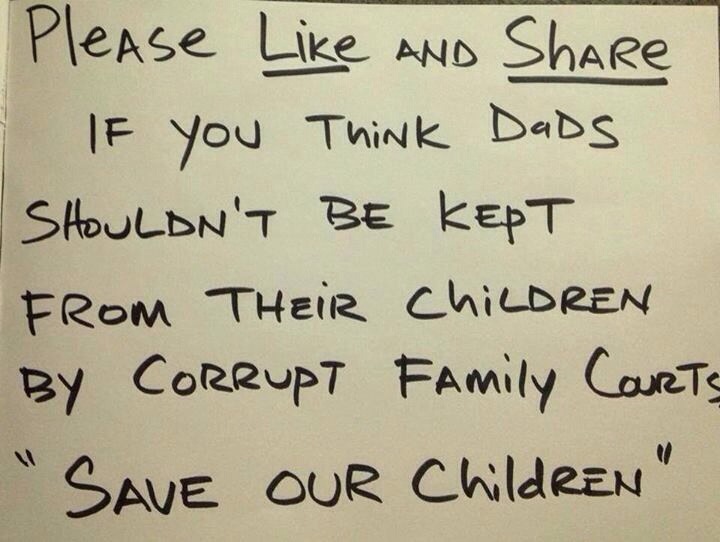 PLeASe Like AND ShARe
IF YOU ThiNK DaDS
SHOULDN'T BE KEPT
FROM THEiR ChiLDREN
BY CORRUPT FAMily CouRTS
"SAVE OUR ChildREN"